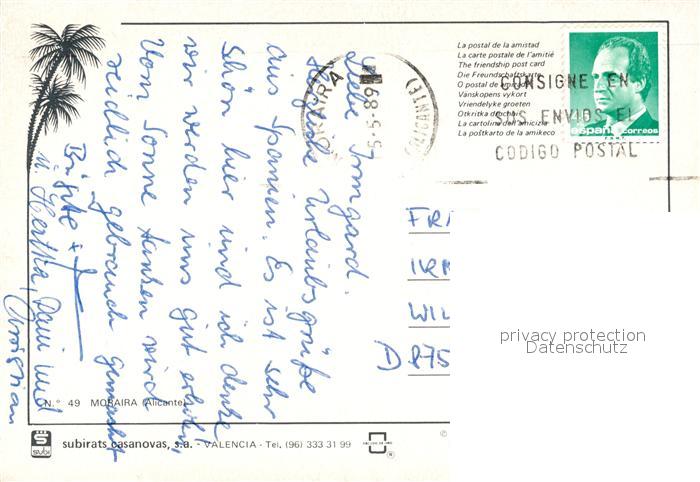 La postal de la amistad
La carte postale de l'amitié
The friendship post card
Die Freundschaftskarte
O postal de
Vänskopens vykort
Vriendelyke groeten
Otkritka
La cartolina dell'amicizia
La poŝtkarto de la amikeco
españa correos
F.N.M.T.
CONSIGNE EN
SUS ENVIOS EL
CODIGO POSTAL
MORAIRA
-5-5-89
(ALICANTE)
Liebe Irmgard.
Herzliche Urlaubsgrüße
aus Spanien. Es ist sehr
schön hier und ich denke
wir werden uns gut erholen,
Vom Sonne tanken wird
reidlich gebrauch gemacht
Brigitte +
u. Hertha, Dani und
Christian
FRA
IRM
WIL
D 875
privacy protection
Datenschutz
N.º 49 MORAIRA (Alicante)
subi
subirats casanovas, s.a. - VALENCIA - Tel. (96) 333 31 99
©
®